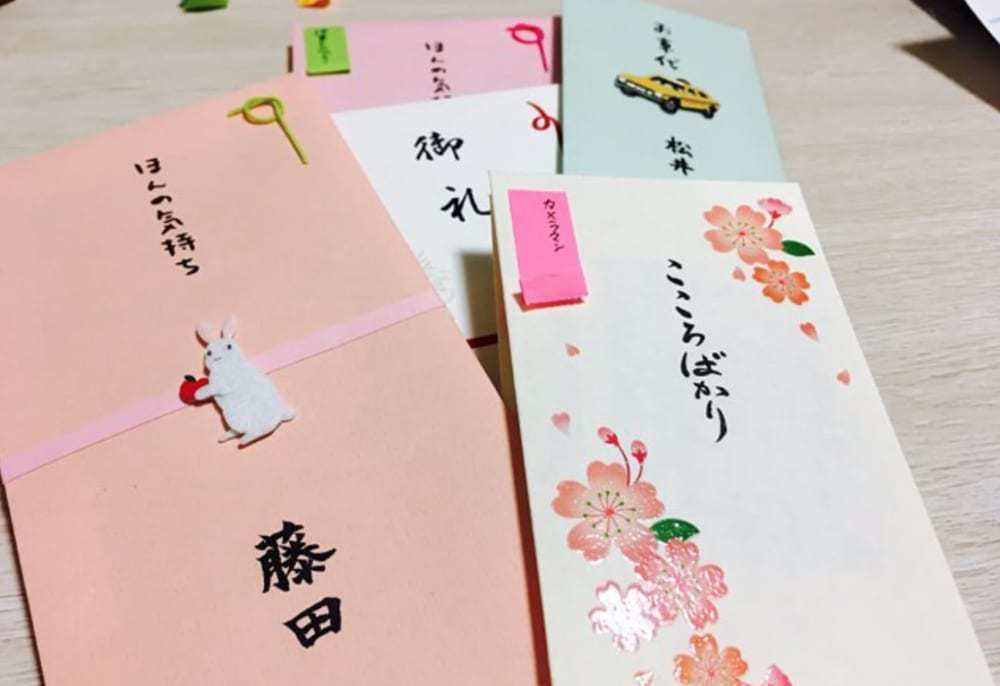 ほんの気持ち
藤田
ほんの気持
御礼
お車代
松井
カメラマン
こころばかり